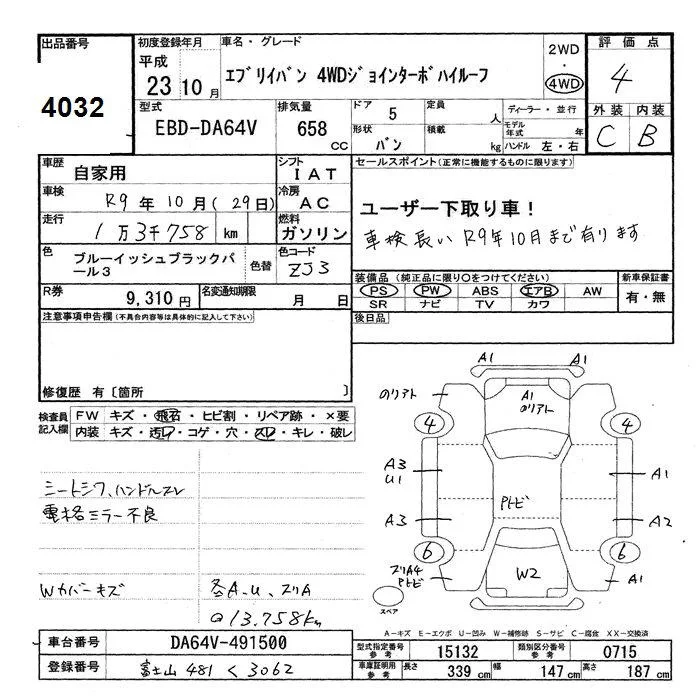 出品番号
4032
初度登録年月
平成
23 10 月
車名・グレード
エブリイバン 4WDジョインターボハイルーフ
2WD
・
4WD
評価点
4
型式
EBD-DA64V
排気量
658
CC
ドア
5
形状
バン
定員
人
積載
kg
ディーラー・並行
モデル年式
年
ハンドル 左・右
外装 内装
C B
車歴
自家用
シフト
IAT
車検
R9 年 10 月 ( 29 日)
冷房
AC
走行
1 万 3千 758 km
燃料
ガソリン
色
ブルーイッシュブラックパール3
色替
色コード
ZJ3
R券
9,310 円
名変通知期限
月 日
セールスポイント(正常に機能するものに限ります)
ユーザー下取り車!
車検長い R9年10月まで有ります
装備品 (純正品に限り○をつけてください)
PS PW ABS エアB AW
SR ナビ TV カワ
新車保証書
有・無
後日品
注意事項申告欄 (不具合内容等は具体的に記入して下さい)
修復歴 有 〔箇所 〕
検査員記入欄
FW キズ・飛石・ヒビ割・リペア跡・×要
内装 キズ・汚レ・コゲ・穴・スレ・キレ・破レ
シートシワ、ハンドルスレ
電格ミラー不良
Wカバーキズ
各A.U、ズリA
@13.758km
A1
A1
のリアト
A1
のリアト
4
4
A3
U1
A1
Pトビ
A3
A2
6
6
ズリA4
Pトビ
W2
A1
スペア
A-キズ E-エクボ U-凹み W-補修跡 S-サビ C-腐食 XX-交換済
車台番号
DA64V-491500
登録番号
富士山 481 く 3062
型式指定番号
参考
15132
類別区分番号
参考
0715
車庫証明用
参考
長さ
339 cm
幅
147 cm
高さ
187 cm